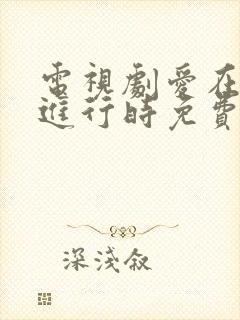 電視劇愛在
進行時免費
深淺叙